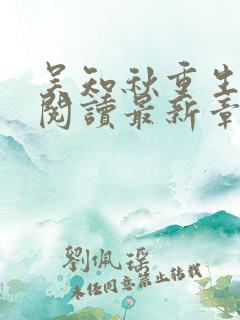 吴知秋重生
閱讀最新章
劉佩瑶
未经同意禁止转载